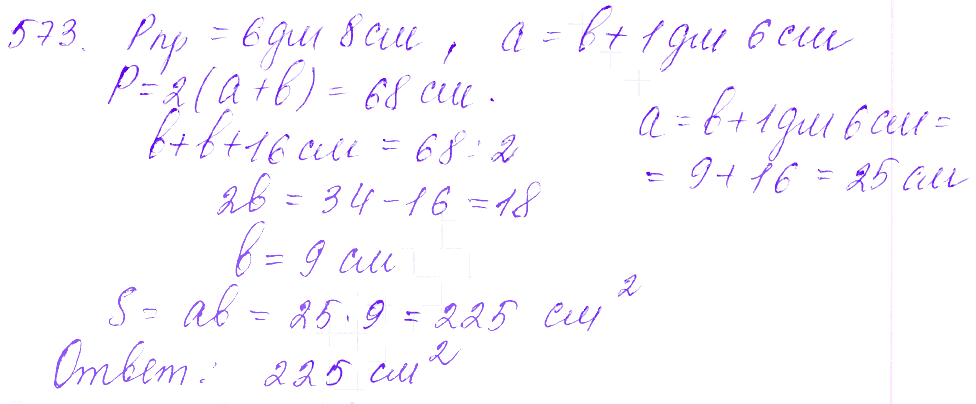 573. Pпр = 6дм 8см, a = b + 1дм 6см
P = 2(a+b) = 68 см.
b+b+16см = 68:2
2b = 34 - 16 = 18
b = 9 см
a = b + 1дм 6см =
= 9 + 16 = 25 см
S = ab = 25·9 = 225 см²
Ответ: 225 см²